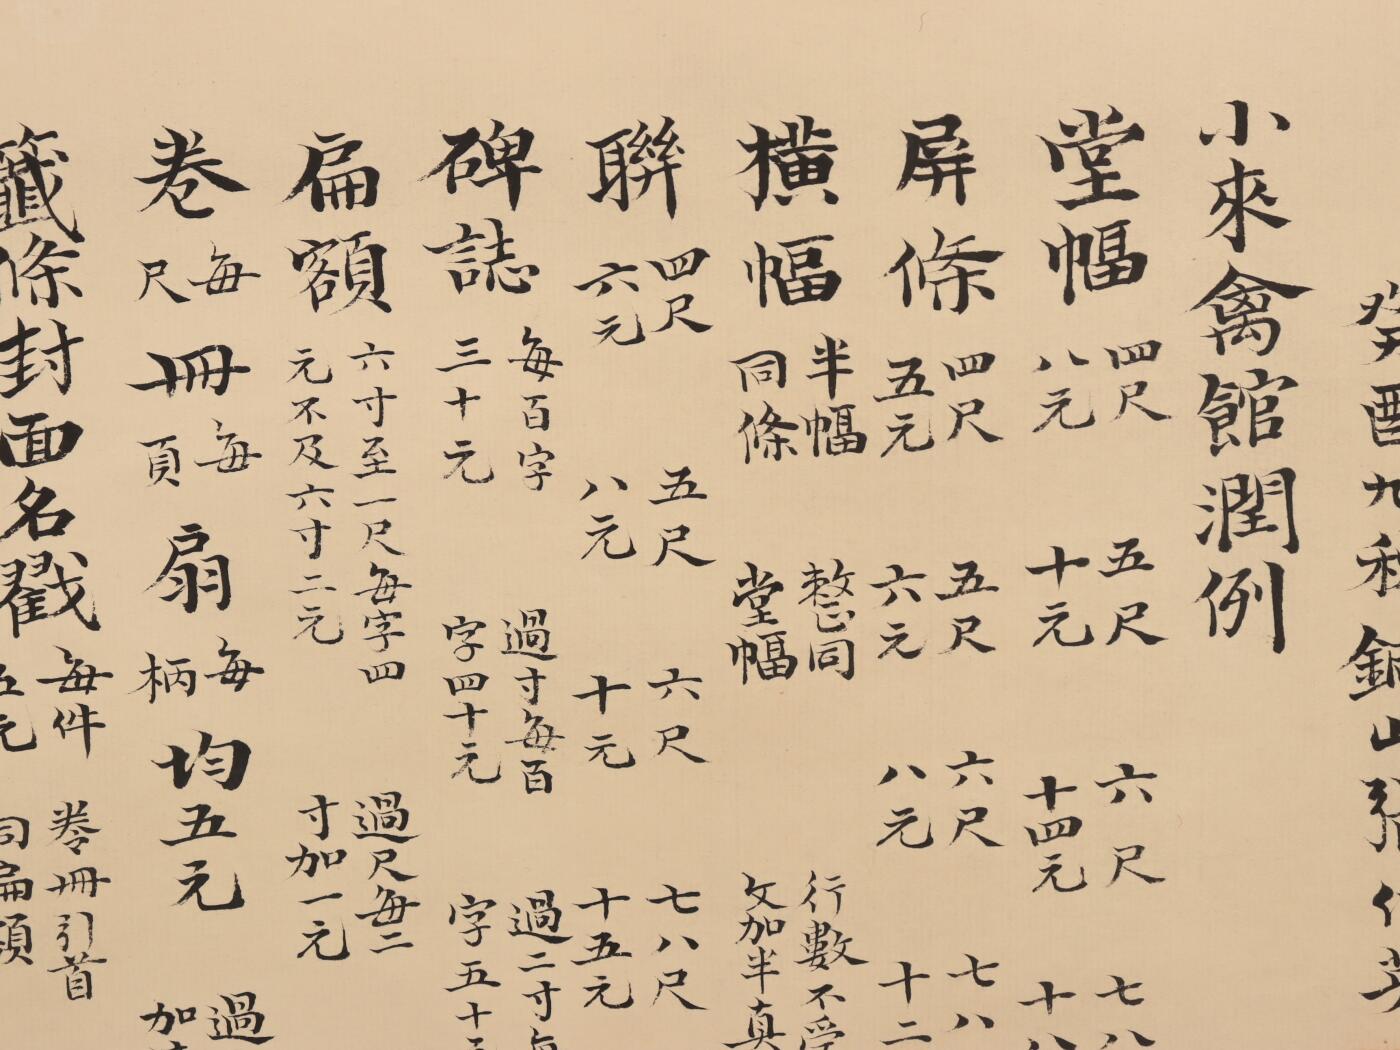 癸酉九秋銅山張伯英
小來禽館潤例
堂幅 四尺八元 五尺十元 六尺十四元 七八
屏條 四尺五元 五尺六元 六尺八元 七八 十二
橫幅 半幅同條 整同堂幅 行數不受 文加半真
聯 四尺六元 五尺八元 六尺十元 七八尺十五元
碑誌 每百字三十元 過寸每百字四十元 過二寸每 字五十元
扁額 六寸至一尺每字四元不及六寸二元 過尺每二寸加一元
卷每尺 冊每頁 扇每柄 均五元 過 加
籤條封面名戳 每件五元 卷冊引首同扁額